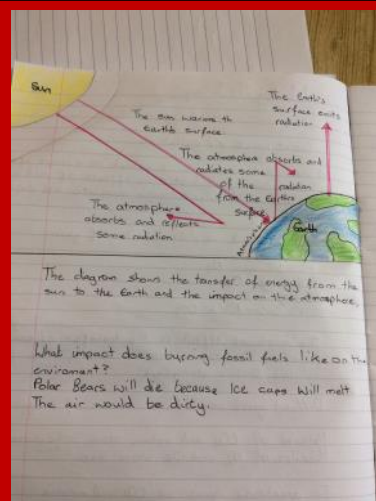 Sun
The Earth's
surface emits
radiation
The sun warms th
Earth's surface.
The atmosphere absorbs and
radiates some
of the radiation
from the Earth's
surface
The atmosphere
absorbs and reflects
some radiation
Earth
The diagram shows the transfer of energy from the
sun to the Earth and the impact on the atmosphere.
What impact does burning fossil fuels like on the
enviroment?
Polar Bears will die because Ice caps will melt
The air would be dirty.